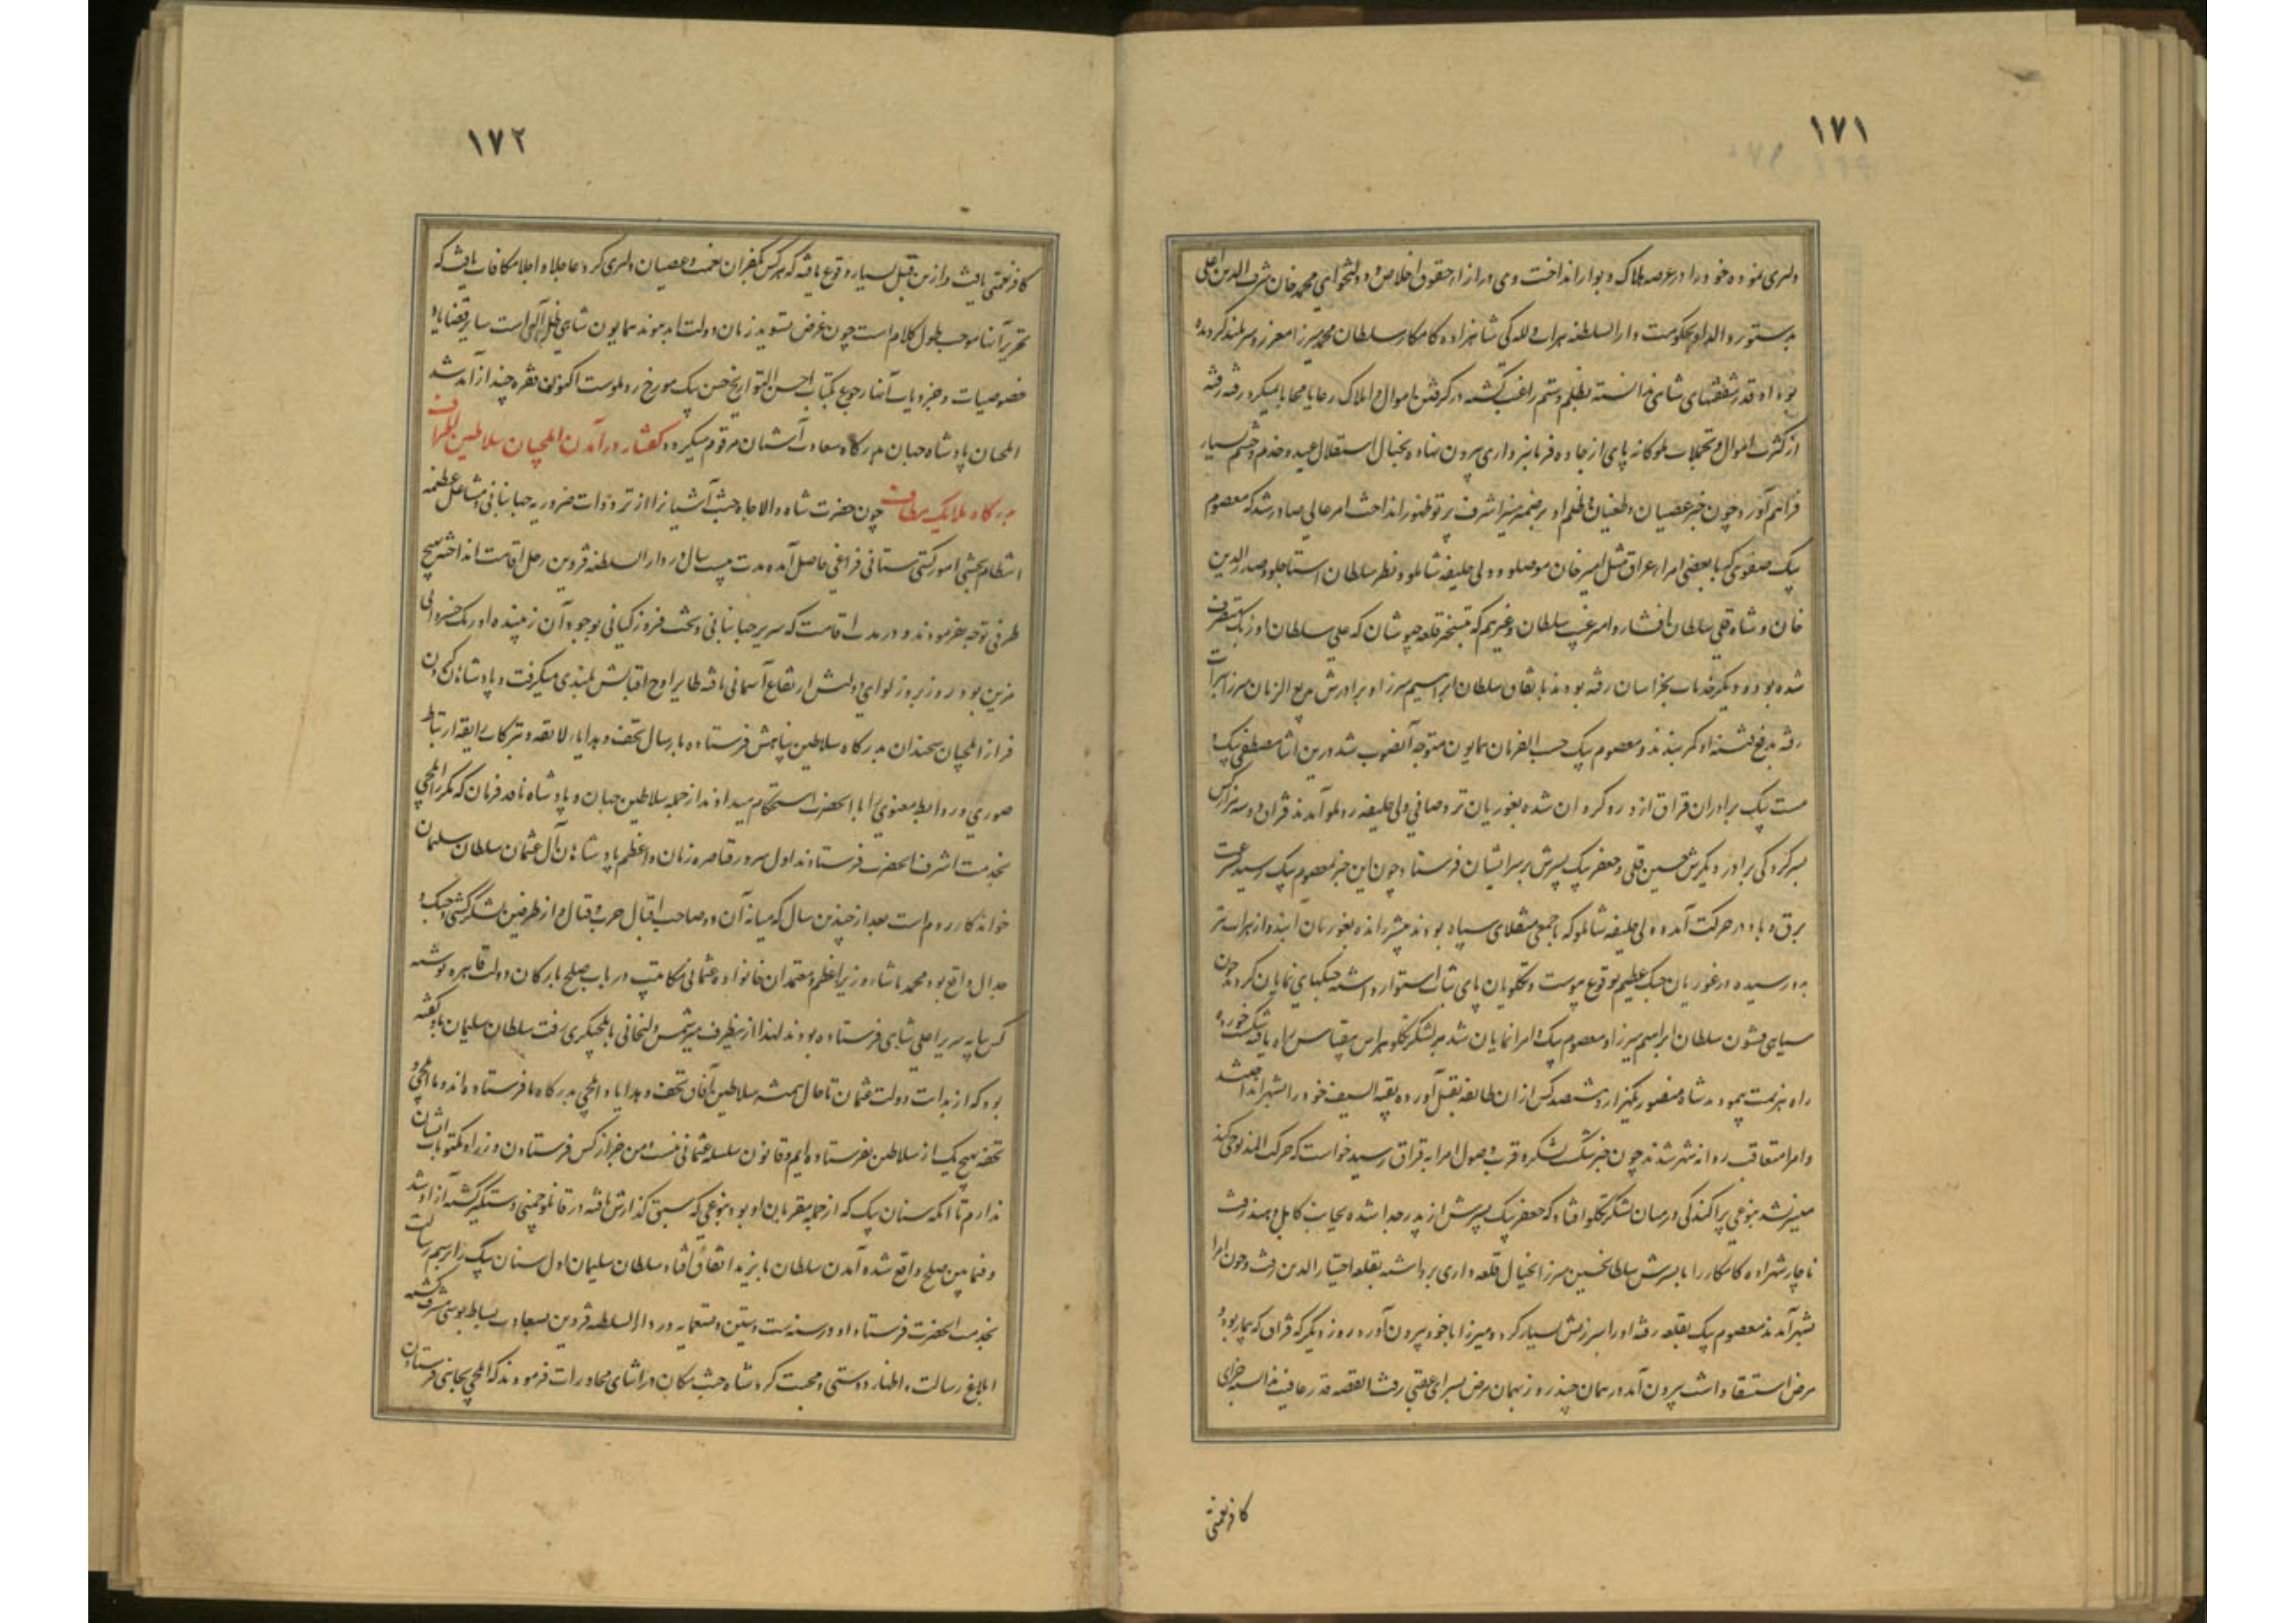 ۱۷۱
دلیری نموده خود را در عرصه هلاک و بوار انداخت وی در ازاء حقوق اخلاص و دولتخواهی محمد خان شرف الدین اغلی
بدستور والد او بحکومت دارالسلطنه هراة و للگی شاهزاده کامکار سلطان محمد میرزا معزز و سربلند گردیده
بود او قدر شفقتهای شاهی ندانسته بظلم و ستم راغب گشته در گرفتن اموال و املاک رعایا محابا نمیکرد رفته رفته
از کثرت اموال و تجملات ملوکانه پای از جاده فرمانبرداری بیرون نهاد و بخیال استقلال عبید و خدم و حشم بسیار
فراهم آورد چون خبر عصیان و طغیان و ظلم او بر ضمیر منیر اشرف پرتو ظهور انداخت امر عالی صادر شد که معصوم
بیک صفوی که با بعضی امراء عراق مثل امیر خان موصلو و ولی خلیفه شاملو و نظر سلطان استاجلو و صدرالدین
خان و شاه قلی سلطان افشار و امیر غیب سلطان و غیرهم که بتسخیر قلعه چبوشان که علی سلطان اوزبک متصرف
شده بود و دیگر خدمات بخراسان رفته بودند باتفاق سلطان ابراهیم میرزا و برادرش بدیع الزمان میرزا بهراة
رفته بدفع فتنه او کمر بندند و معصوم بیک حسب الفرمان همایون متوجه آنصوب شد در این اثنا مصطفی بیک و
مست بیک برادران قزاق از و رو گردان شده بغوریان نزد صافی ولی خلیفه روملو آمدند قزاق دو سه هزار کس
بسرکردگی برادر دیگرش حسین قلی و جعفر بیک پسرش بر سر ایشان فرستاد چون این خبر بمعصوم بیک رسید بسرعت
برق و باد در حرکت آمده ولی خلیفه شاملو که با جمعی منقلای سپاه بودند پیشتر رانده بغوریان آمدند و از هراة نیز
مدد رسیده در غوریان جنگ عظیم بوقوع پیوست و تکلویان پای ثبات استوار داشته جنگهای نمایان کردند چون
سیاهی قشون سلطان ابراهیم میرزا و معصوم بیک و امرا نمایان شد بر لشکر تکلو هراس بیقیاس راه یافته شکست خورده
راه هزیمت پیمودند شاه منصور یکهزار و ششصد کس از آن طایفه بقتل آورده بقیة السیف خود را بشهر انداختند
و امرا متعاقب روانه شهر شدند چون خبر شکست لشکر و قرب وصول امرا به قزاق رسید خواست که حرکت المذبوحی کند
میسر نشد بنوعی پراکندگی در میان لشکر تکلو افتاد که جعفر بیک پسرش از پدر جدا شده بجانب کابل و هند رفت
ناچار شهزاده کامکار را با پسرش سلطانحسین میرزا بخیال قلعه داری برداشته بقلعه اختیار الدین رفت و چون امرا
بشهر آمدند معصوم بیک بقلعه رفته او را سرزنش بسیار کرد و میرزا با خود بیرون آورد و روز دیگر که قزاق که بیمار بود و
مرض استسقا داشت بیرون آمد در همان چند روز بهمان مرض بسرای عقبی رفت القصه قدر عافیت ندانسته جزای
کافر نعمتی
۱۷۲
کافر نعمتی یافت و ازین قبیل بسیار وقوع یافته که هر کس بکفران نعمت و عصیان دلیری کرد عاجلا و آجلا مکافات یافت که
تحریر آنها موجب طول کلام است چون غرض تسوید زمان دولت ابد پیوند همایون شاهی ظل الهی است سایر قضایا و
خصوصیات و جزویات آنها رجوع بکتاب احسن التواریخ حسن بیک مورخ روملوست اکنون فقره چند از آمد شد
ایلچیان پادشاه جهان بدرگاه سعادت آشیان مرقوم میگردد گفتار در آمدن ایلچیان سلاطین اطراف
بدرگاه ملایک مطاف چون حضرت شاه والا جاه جنت آشیانرا از ترددات ضروریه جهانبانی و مشاغل عظیمه
انتظام بخشی امور گیتی ستانی فراغی حاصل آمده مدت بیست سال در دارالسلطنه قزوین رحل اقامت انداخته بهیچ
طرفی توجه نفرمودند و در مدت اقامت که سریر جهانبانی و تخت فیروز کیانی بوجود آن زیبنده اورنک خسروانی
مزین بود روز بروز لوای دولتش ارتفاع آسمانی یافته طایر اوج اقبالش بلندی میگرفت و پادشاهان گردون
فراز ایلچیان سخندان بدرگاه سلاطین پناهش فرستاده بارسال تحف و هدایاء لایقه و تبرکات رایقه ارتباط
صوری و روابط معنوی را با آنحضرت استحکام میدادند از جمله سلاطین جهان و پادشاه نافذ فرمان که مکرر ایلچی
بخدمت اشرف آنحضرت فرستادند اول سرور قیاصره زمان و اعظم پادشاهان آل عثمان سلطان سلیمان
خواندکار روم است بعد از چندین سال که میانه آن دو صاحب اقبال حرب و قتال و از طرفین لشکر کشی و جنک و
جدال واقع بود محمد پاشا وزیر اعظم و معتمدان خانواده عثمانی مکاتیب در باب صلح بارکان دولت قاهره نوشته
کس بپایه سریر اعلی شاهی فرستاده بودند لهذا ازینطرف میر شمس دلیجانی بایلچیگری رفت سلطان سلیمان باو گفته
بود که از بدایت دولت عثمان تا حال همیشه سلاطین آفاق تحف و هدایا و ایلچی بدرگاه ما فرستاده اند و ما ایلچی و
تحفه بهیچ یک از سلاطین نفرستاده ایم و قانون سلسله عثمانی نیست من خبر از کس فرستادن وزرا و مکتوبات ایشان
ندارم تا آنکه سنان بیک که از جمله مقربان او بود بنوعی که سبق گذارش یافته در قانلو چمنی دستگیر گشته آزاد شد
و فیمابین صلح واقع شده آمدن سلطان بایزید اتفاق افتاد سلطان سلیمان اول سنان بیک را برسم رسالت
بخدمت آنحضرت فرستاد او در سنه ست و ستین و تسعمایه در دارالسلطنه قزوین بسعادت بساط بوسی مشرف گشته
ابلاغ رسالت و اظهار دوستی و محبت کرد شاه جنت مکان در اثنای محاورات فرمودند که ایلچی بجایی فرستادن